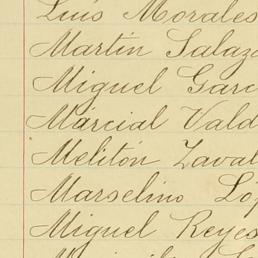 Luis Morales
Martin Salaza
Miguel Garc
Marcial Vald
Melitón Zaval
Marselino Lóp
Miguel Reyes